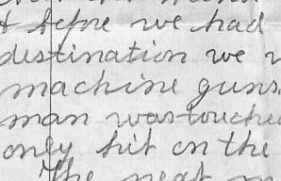 & before we had
destination we
machine guns
man was touched
only hit on the
The next